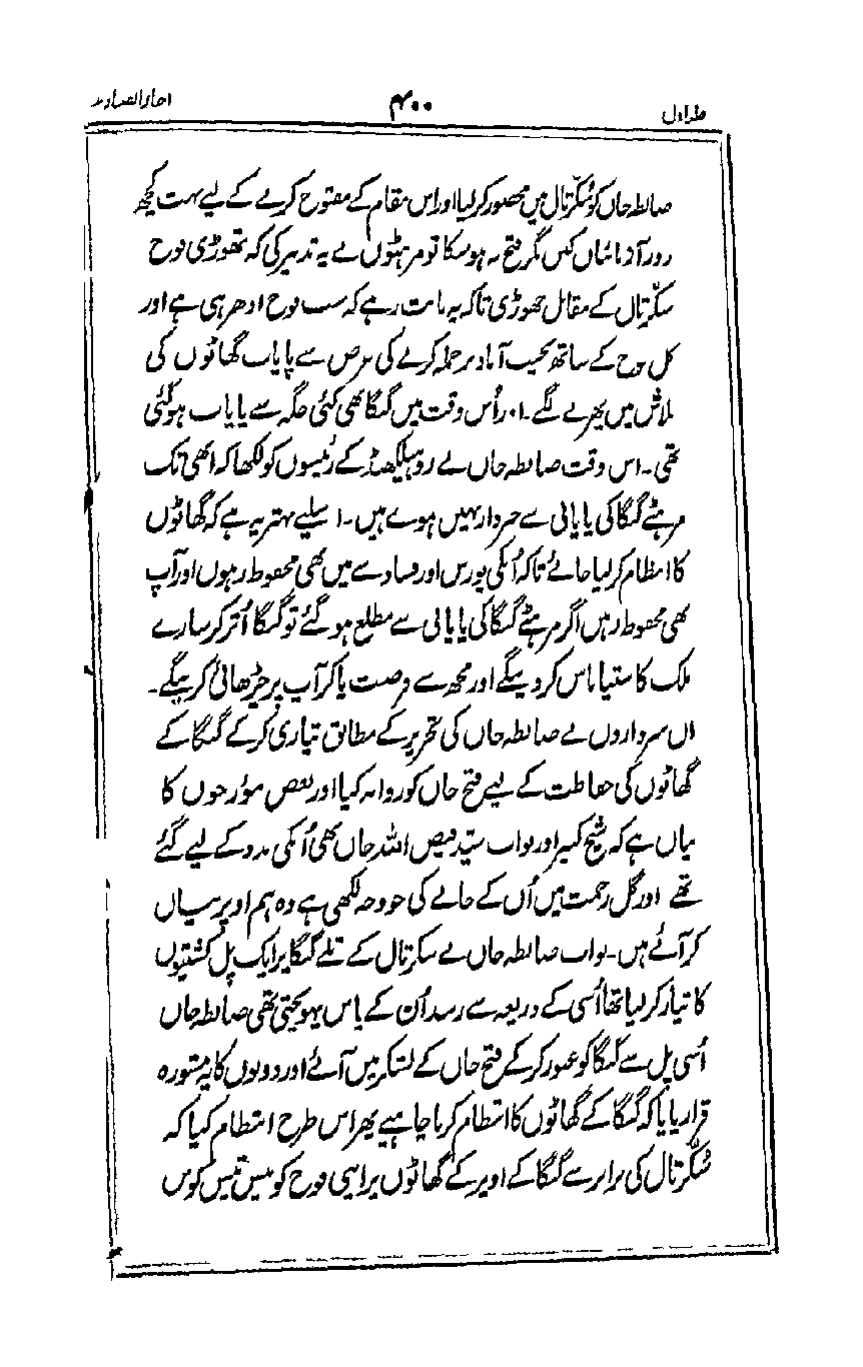 اخبار الصنادید ۴۰۰ جلد اول
ضابطہ خاں کو سُکرّتال میں محصور کر لیا اور اس مقام کے مفتوح کرنے کے لیے بہت کچھ
زور آزمائیاں کیں مگر فتح نہ ہو سکا تو مرہٹوں نے یہ تدبیر کی کہ تھوڑی فوج
سکرّتال کے مقابل چھوڑی تاکہ یہ بات رہے کہ سب فوج ادھر ہی ہے اور
کل فوج کے ساتھ نجیب آباد پر حملہ کرنے کی غرض سے پایاب گھاٹوں کی
تلاش میں پھرنے لگے۔ اور اُس وقت میں گنگا بھی کئی جگہ سے پایاب ہو گئی
تھی۔ اس وقت ضابطہ خاں نے روہیلکھنڈ کے رئیسوں کو لکھا کہ ابھی تک
مرہٹے گنگا کی پایابی سے خبردار نہیں ہوے ہیں۔ اسلیے بہتر یہ ہے کہ گھاٹوں
کا انتظام کر لیا جائے تاکہ اُنکی یورش اور فساد سے میں بھی محفوظ رہوں اور آپ
بھی محفوظ رہیں اگر مرہٹے گنگا کی پایابی سے مطلع ہو گئے تو گنگا اُتر کر سارے
ملک کا ستیاناس کر دینگے اور مجھ سے فرصت پا کر آپ پر چڑھائی کرینگے۔
اں سرداروں نے ضابطہ خاں کی تحریر کے مطابق تیاری کر کے گنگا کے
گھاٹوں کی حفاظت کے لیے فتح خاں کو روانہ کیا اور بعض مؤرخوں کا
بیان ہے کہ شیخ کبیر اور نواب سیّد فیض اللہ خاں بھی اُنکی مدد کے لیے گئے
تھے اور گل رحمت میں اُن کے جانے کی جو وجہ لکھی ہے وہ ہم اوپر بیان
کر آئے ہیں۔ نواب ضابطہ خاں نے سکرتال کے تلے گنگا پر ایک پل کشتیوں
کا تیار کر لیا تھا اُسی کے ذریعہ سے رسد اُن کے پاس پہونچتی تھی ضابطہ خاں
اُسی پل سے گنگا کو عبور کر کے فتح خاں کے لشکر میں آئے اور دونوں کا یہ مشورہ
قرار پایا کہ گنگا کے گھاٹوں کا انتظام کرنا چاہیے پھر اس طرح انتظام کیا کہ
سُکرّتال کی برابر سے گنگا کے اوپر کے گھاٹوں پر اپنی فوج کو بیس تیس کوس